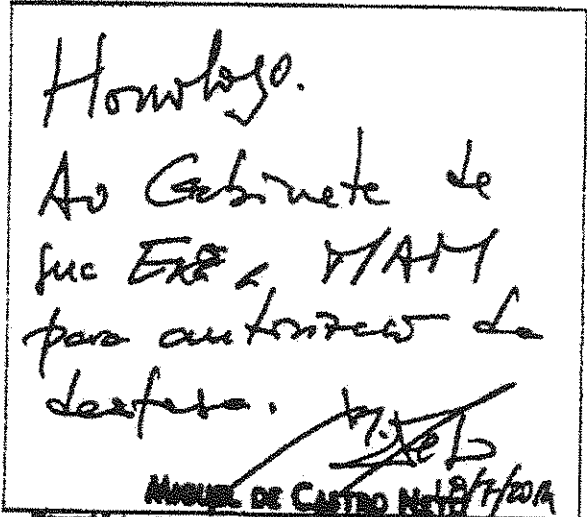 Homologo.
Ao Gabinete de
Sua Exª a MAM
para autorização da
despesa.
MIGUEL DE CASTRO NETO